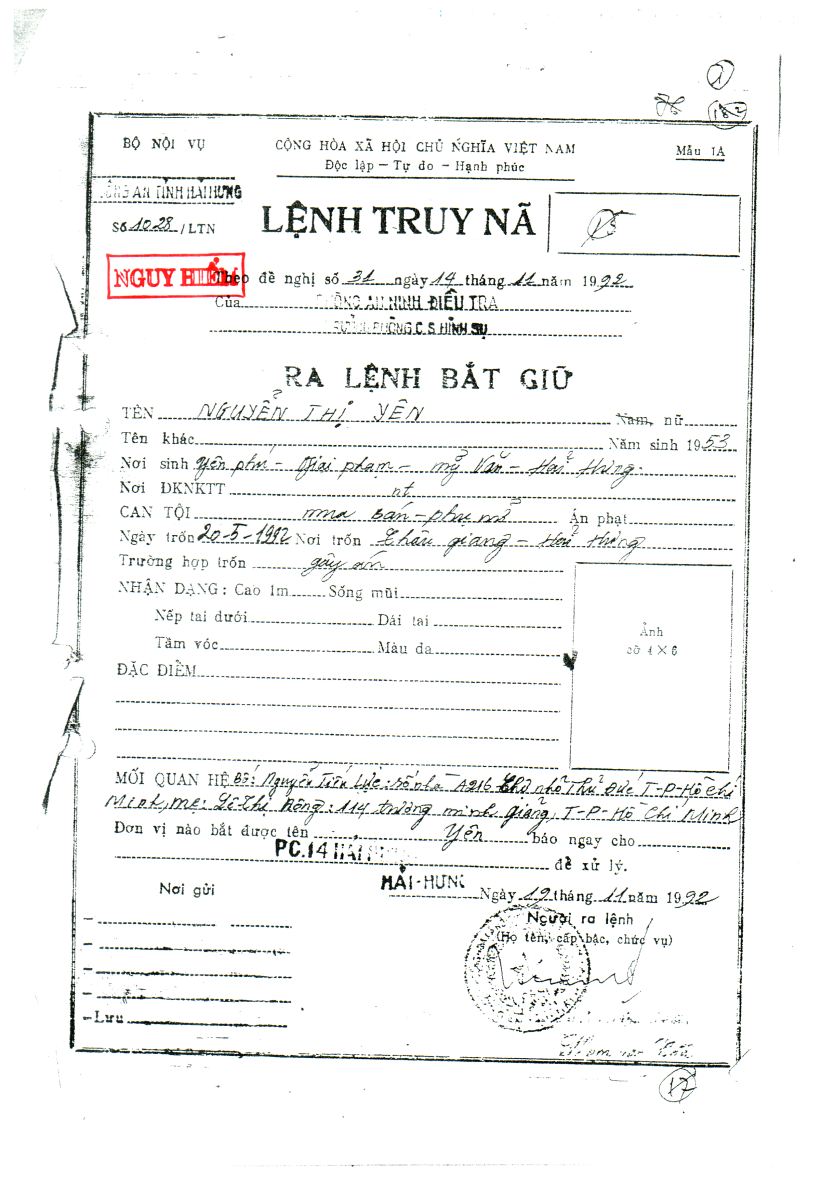 1
182
BỘ NỘI VỤ
CỘNG HÒA XÃ HỘI CHỦ NGHĨA VIỆT NAM
Mẫu 1A
Độc lập — Tự do — Hạnh phúc
CÔNG AN TỈNH HẢI HƯNG
Số 1028 / LTN
LỆNH TRUY NÃ
NGUY HIỂM
Theo đề nghị số 31 ngày 14 tháng 11 năm 1992
Của PHÒNG AN NINH ĐIỀU TRA
PHÒNG C.S HÌNH SỰ
RA LỆNH BẮT GIỮ
TÊN NGUYỄN THỊ YÊN Nam, nữ
Tên khác Năm sinh 1953
Nơi sinh Yên phú - Giai phạm - mỹ Văn - Hải Hưng
Nơi ĐKNKTT nt
CAN TỘI mua bán - phụ nữ Án phạt
Ngày trốn 20-5-1992 Nơi trốn Châu giang - Hải Hưng
Trường hợp trốn gây án
NHẬN DẠNG: Cao 1m Sống mũi
Nếp tai dưới Dái tai
Tầm vóc Màu da
Ảnh
cỡ 4 × 6
ĐẶC ĐIỂM
MỐI QUAN HỆ Bố: Nguyễn Tiến Lực: Số nhà A216 Chợ nhỏ Thủ Đức T-P-Hồ chí
Minh, mẹ: Lê Thị Nông: 114 trương minh giảng, T-P-Hồ Chí Minh
Đơn vị nào bắt được tên Yên báo ngay cho
PC.14 HẢI để xử lý.
HẢI-HƯNG Ngày 19 tháng 11 năm 1992
Nơi gửi
Người ra lệnh
(Họ tên, cấp bậc, chức vụ)
—Lưu
17